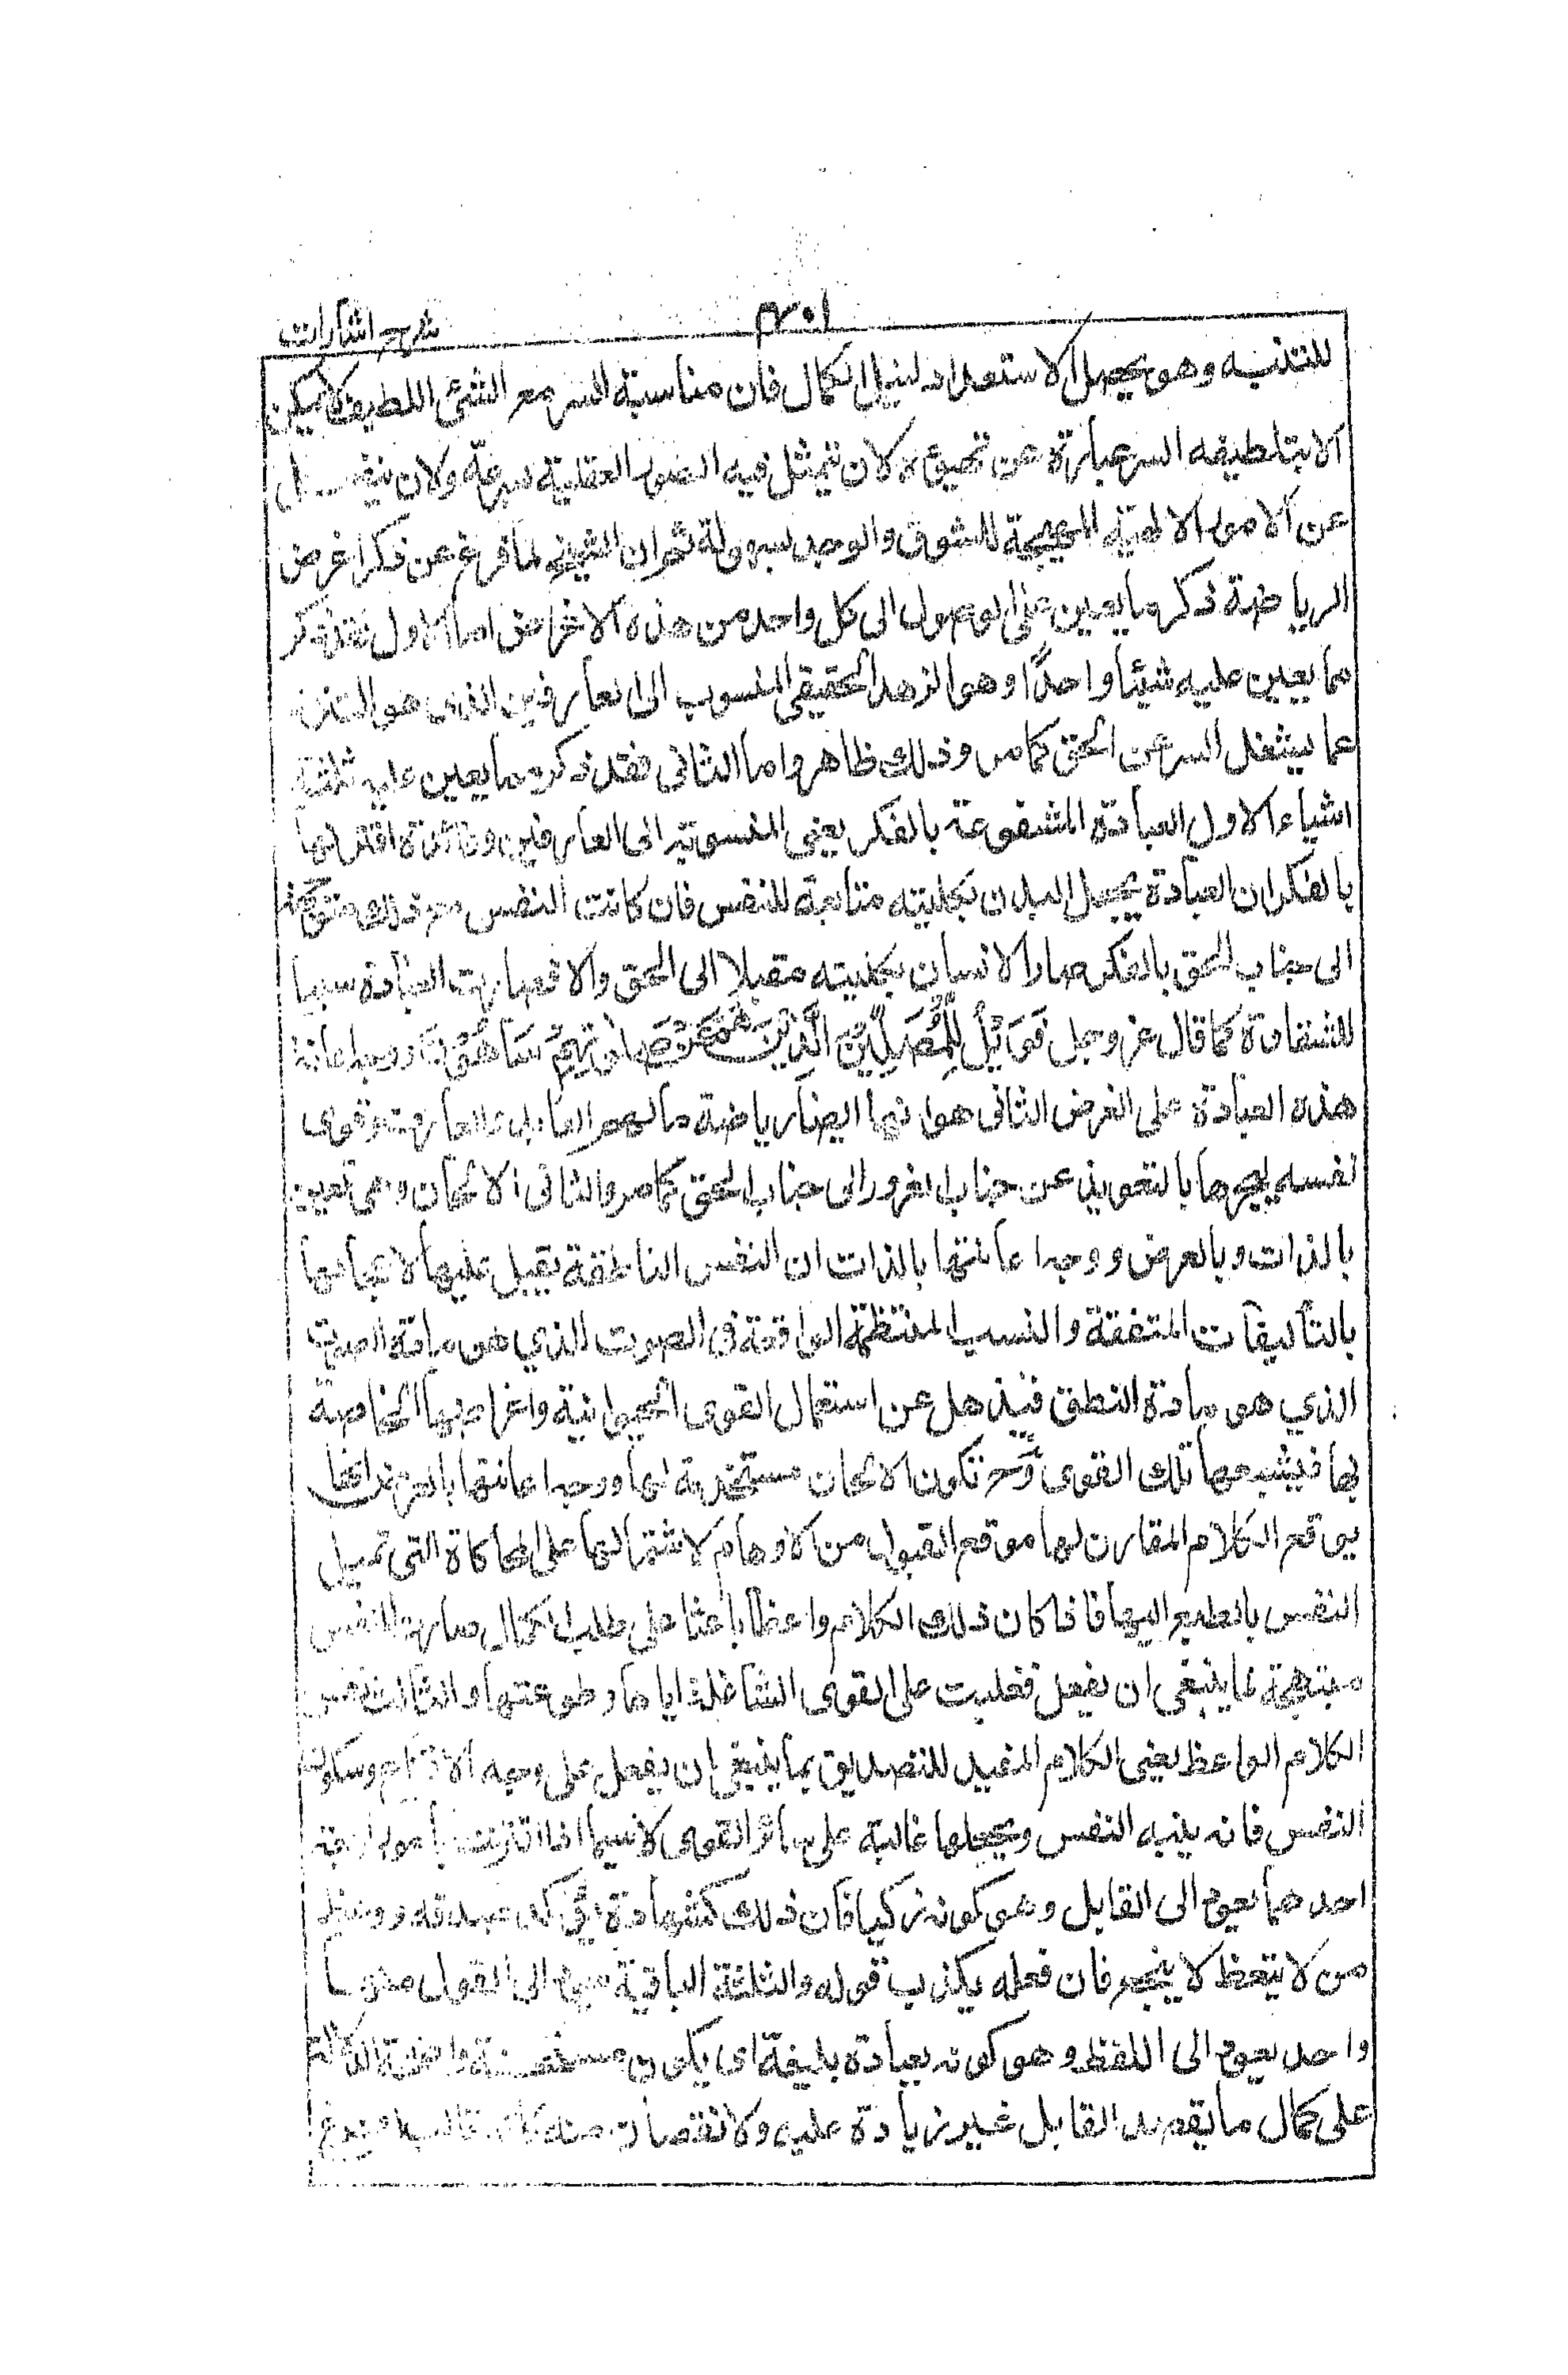 شرح اشارات
للتنبه وهو يحصل الاستعداد لنيل الكمال فان مناسبة السر مع الشئ اللطيف لا يمكن
الا بتلطيفه السر عبارة عن تهيؤه لان يتمثل فيه الصور العقلية بسرعة ولان ينفعل
عن الامور الالهية المهيجة للشوق والوجد بسهولة ثم ان الشيخ لما فرغ عن ذكر اغراض
الرياضة ذكر ما يعين على الوصول الى كل واحد من هذه الاغراض اما الاول فقد ذكر
مما يعين عليه شيئا واحدًا وهو الزهد الحقيقي المنسوب الى العارفين الذي هو التنزه
عما يشغل السر عن الحق كما مر وذلك ظاهر واما الثاني فقد ذكر مما يعين عليه ثلثة
اشياء الاول العبادة المشفوعة بالفكر يعنى المنسوبة الى العارفين وفائدة اقترانها
بالفكر ان العبادة يجعل البدن بكليته متابعة للنفس فان كانت النفس مع ذلك متوجهة
الى جناب الحق بالفكر صار الانسان بكليته مقبلا الى الحق والا فصارت العبادة سببا
للشقاوة كما قال عز وجل فَوَيْلٌ لِّلْمُصَلِّيْنَ الَّذِيْنَ هُمْ عَنْ صَلٰوتِهِمْ سَاهُوْنَ ووجه اعانة
هذه العبادة على الغرض الثانى هو انها ايضا رياضة ما لهمم العابد العارف وقوى
نفسه ليجرها بالتعويذ عن جناب الغرور الى جناب الحق كما مر والثانى الالحان وهى تعين
بالذات وبالعرض ووجه اعانتها بالذات ان النفس الناطقة يقبل عليها لاعجابها
بالتاليفات المتفقة والنسب المنتظمة الواقعة فى الصوت الذي هو مادة الصوت
الذي هو مادة النطق فيذهل عن استعمال القوى الحيوانية واغراضها الخاصة
بها فيشبعها تلك القوى وح تكون الالحان مستخدمة لها ووجه اعانتها بالعرض انها
يوقع الكلام المقارن لها موقع القبول من الاوهام لاشتمالها على المحاكاة التى تميل
النفس بالطبع اليها فاذا كان ذلك الكلام واعظا باعثا على طلب الكمال صارت النفس
متبهجة لما ينبغى ان يفعل فغلبت على القوى الشاغلة اياها وطوعتها والثالث نفس
الكلام الواعظ يعنى الكلام المفيد للتصديق بما ينبغى ان يفعل على وجه الاقناع وسكون
النفس فانه ينبه النفس ويجعلها غالبة على سائر القوى لاسيما اذا اقترنت بامور اربعة
احدهما يعود الى القايل وهو كونه زكيا فان ذلك كشهادة تؤكد صدقه ووعظ
من لا يتعظ لا ينجع فان فعله يكذب قوله والثلثة الباقية يعود الى القول منها
واحد يعود الى اللفظ وهو كونه بعبارة بليغة اى يكون مستحسنة واضحة الدلالة
على كمال ما يقصد القايل غير زيادة عليه ولا نقصان منه